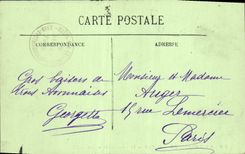 CARTE POSTALE
CORRESPONDANCE
ADRESSE
Gros baisers de
trois Avonnaises
Georgette
Monsieur et Madame
Auger
15 rue Lemercier
Paris